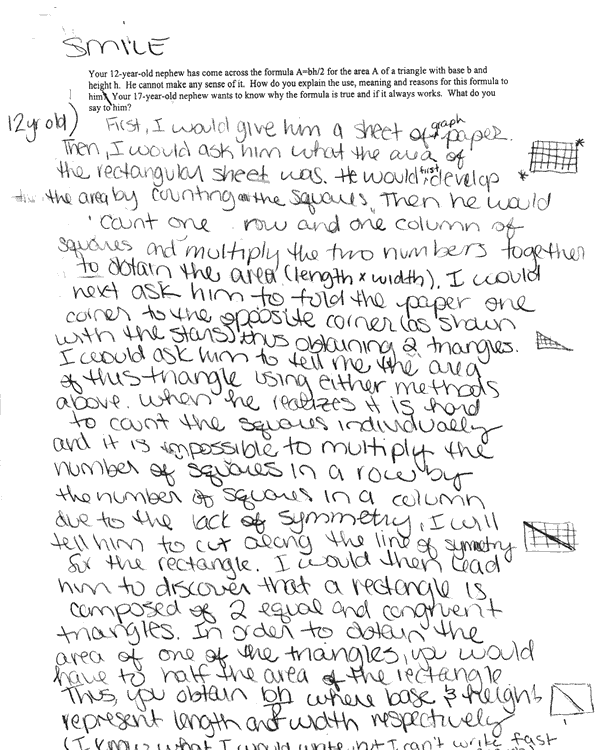 SMILE
Your 12-year-old nephew has come across the formula A=bh/2 for the area A of a triangle with base b and
height h. He cannot make any sense of it. How do you explain the use, meaning and reasons for this formula to
him? Your 17-year-old nephew wants to know why the formula is true and if it always works. What do you
say to him?
12 yr old) First, I would give him a sheet of graph paper.
Then, I would ask him what the area of
the rectangular sheet was. He would first develop
the area by counting the squares. Then he would
count one row and one column of
squares and multiply the two numbers together
to obtain the area (length x width). I would
next ask him to fold the paper one
corner to the opposite corner (as shown
with the stars) thus obtaining 2 triangles.
I would ask him to tell me the area
of this triangle using either methods
above. When he realizes it is hard
to count the squares individually
and it is impossible to multiply the
number of squares in a row by
the number of squares in a column
due to the lack of symmetry, I will
tell him to cut along the line of symetry
for the rectangle. I would then lead
him to discover that a rectangle is
composed of 2 equal and congruent
triangles. In order to obtain the
area of one of the triangles, you would
have to half the area of the rectangle
Thus, you obtain bh where base & height
represent length and width respectively
(I know what I would write but I can't write fast